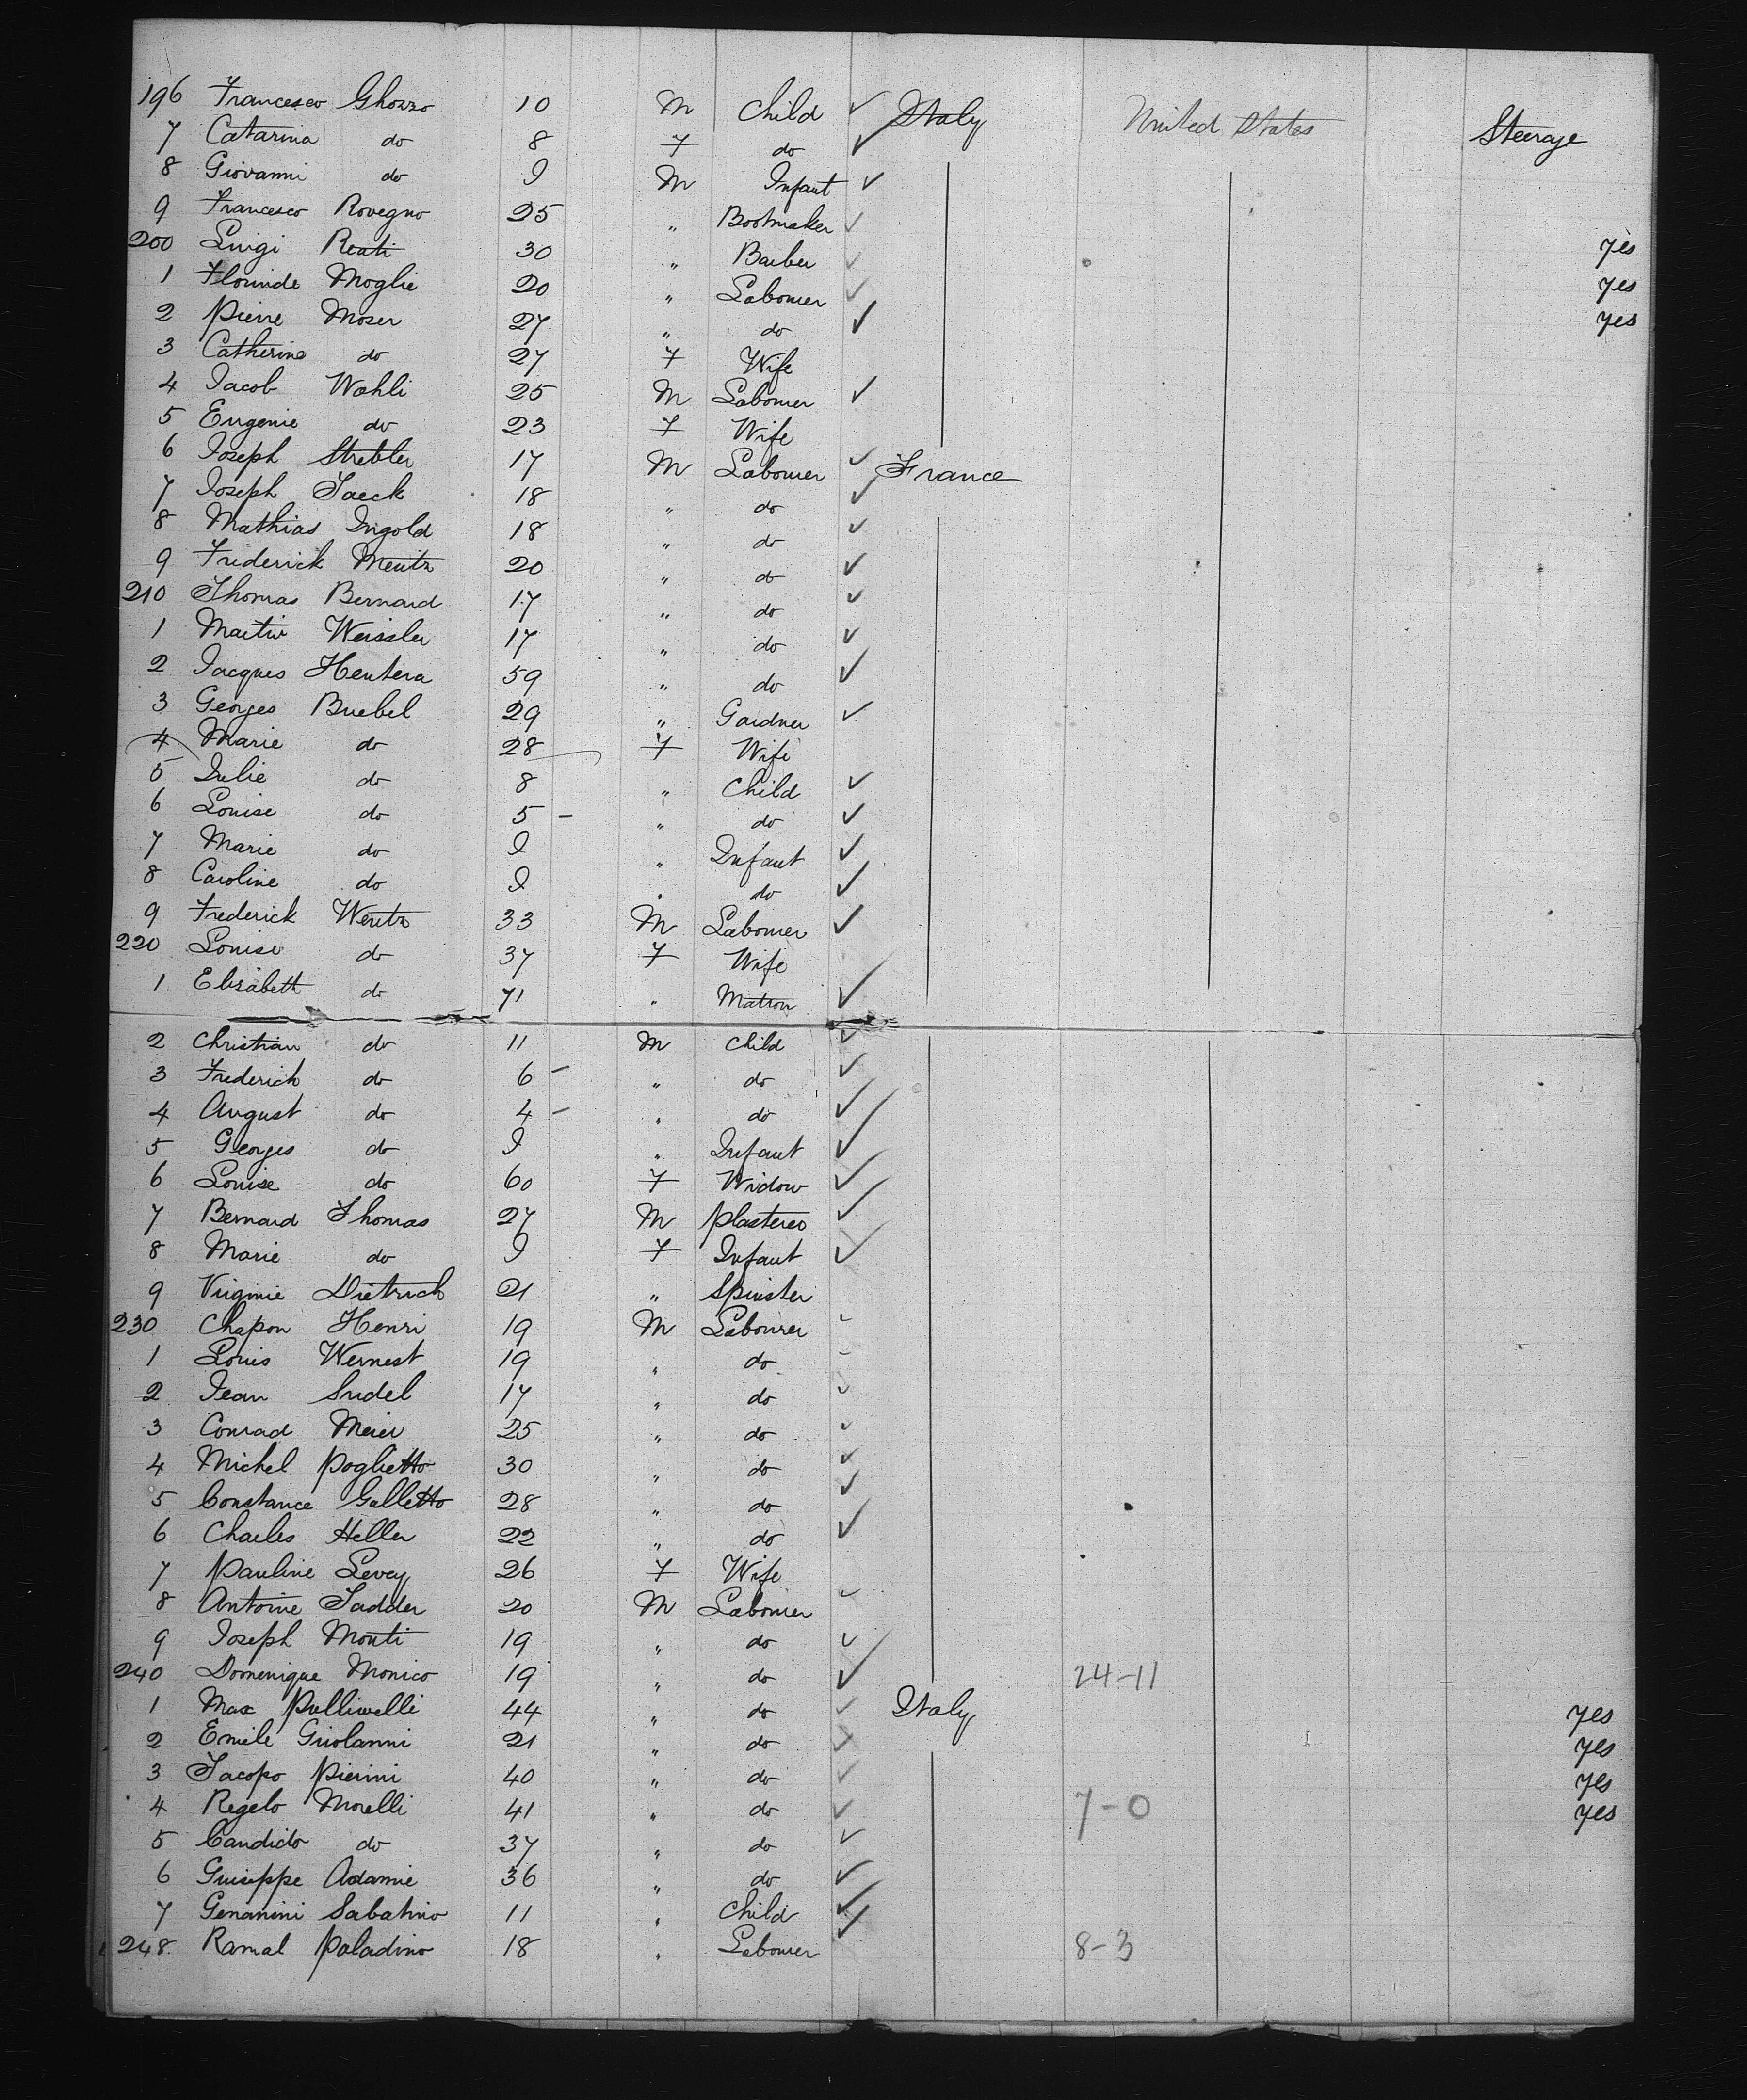 196 Francesco Ghozzo 10 M Child ✓ Italy United States Steerage
7 Catarina do 8 F do ✓
8 Giovanni do I M Infant ✓
9 Francesco Rovegno 25 " Bootmaker ✓
200 Luigi Reati 30 " Barber ✓ yes
1 Florinde Moglie 20 " Labourer ✓ yes
2 Pierre Moser 27 " do ✓ yes
3 Catherine do 27 F Wife
4 Jacob Wohli 25 M Labourer ✓
5 Eugenie do 23 F Wife
6 Joseph Strebler 17 M Labourer ✓ France
7 Joseph Jaeck 18 " do ✓
8 Mathias Ingold 18 " do ✓
9 Frederick Meutz 20 " do ✓
210 Thomas Bernard 17 " do ✓
1 Martin Weissler 17 " do ✓
2 Jacques Hentera 59 " do ✓
3 Georges Buebel 29 " Gardner ✓
4 Marie do 28 F Wife
5 Julie do 8 " Child ✓
6 Louise do 5 - " do ✓
7 Marie do I " Infant ✓
8 Caroline do I " do ✓
9 Frederick Wentz 33 M Labourer ✓
220 Louise do 37 F Wife
1 Elisabeth do 71 " Matron ✓
2 Christian do 11 M Child ✓
3 Frederick do 6 - " do ✓
4 August do 4 - " do ✓
5 Georges do I " Infant ✓
6 Louise do 60 F Widow ✓
7 Bernard Thomas 27 M Plasterer ✓
8 Marie do I F Infant ✓
9 Virginie Dietrich 21 " Spinster
230 Chapon Henri 19 M Labourer ✓
1 Louis Wernest 19 " do ✓
2 Jean Sudel 17 " do ✓
3 Conrad Meier 25 " do ✓
4 Michel Poglietto 30 " do ✓
5 Constance Galletto 28 " do ✓
6 Charles Heller 22 " do ✓
7 Pauline Levey 26 F Wife
8 Antoine Sadder 20 M Labourer ✓
9 Joseph Monti 19 " do ✓
240 Domenique Monico 19 " do ✓ 24-11
1 Max Pulliwelli 44 " do ✓ Italy yes
2 Emile Griolanni 21 " do ✓ yes
3 Jacopo Pierini 40 " do ✓ yes
4 Regelo Morelli 41 " do ✓ 7-0 yes
5 Candido do 37 " do ✓
6 Guiseppe Adamie 36 " do ✓
7 Genanini Sabatino 11 " Child ✓
248 Ramal Paladino 18 " Labourer ✓ 8-3